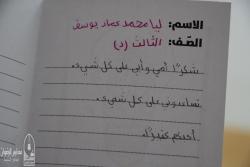 الاسم: ليا محمد عماد يوسف
الصف: الثالث (د)
شكرًا أمي وأبي على كل شيء.
تساعدوني على كل شيء.
أحبكم كثيرًا.